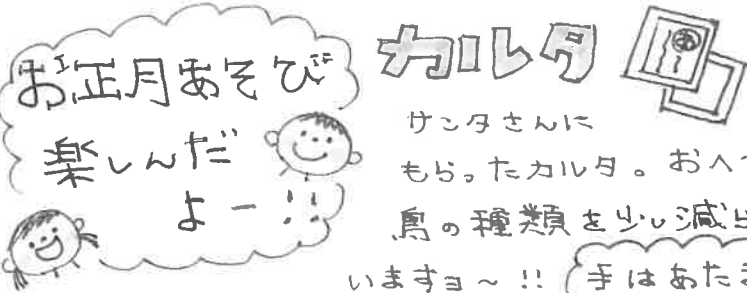 お正月あそび
楽しんだ
よー!!
カルタ
あ
サンタさんに
もらったカルタ。おへ
鳥の種類を少し減ら
いますョ~!!
手はあたま